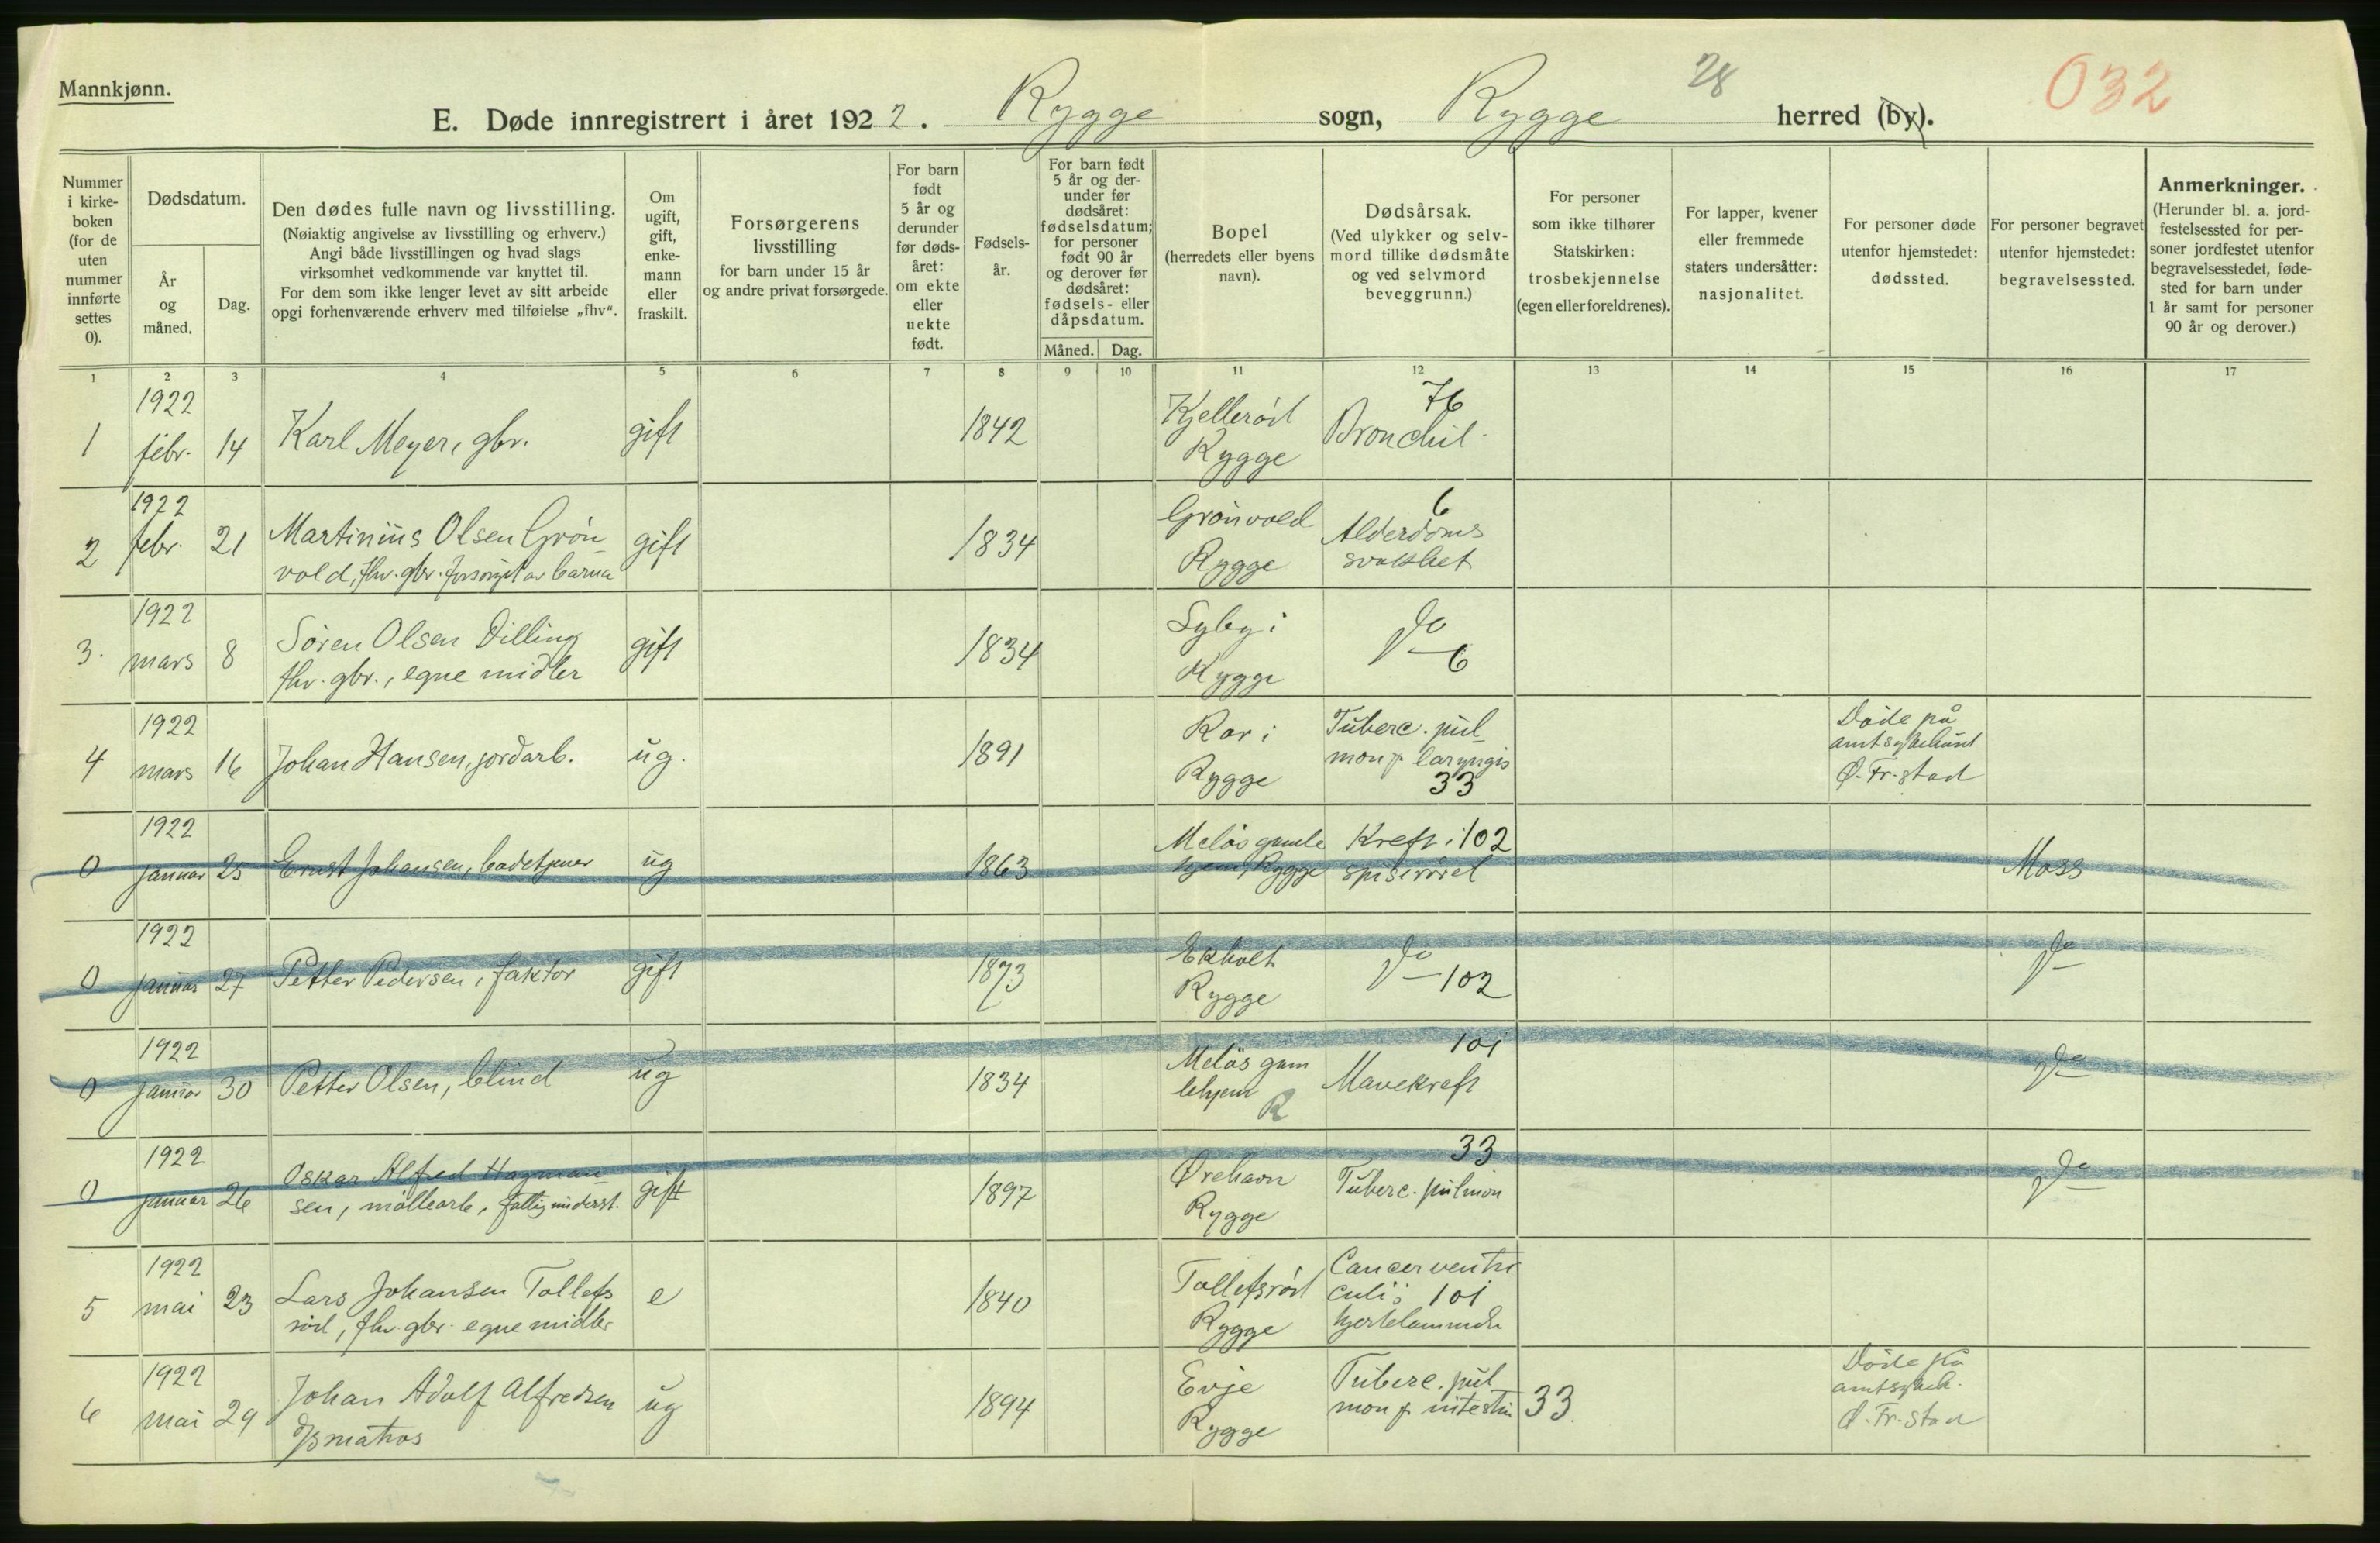 Mannkjønn.
28
032
E. Døde innregistrert i året 1922. Rygge sogn, Rygge herred (by).
Nummer i kirke- boken (for de uten nummer innførte settes 0).
Dødsdatum.
År og måned.
Dag.
Den dødes fulle navn og livsstilling.
(Nøiaktig angivelse av livsstilling og erhverv.)
Angi både livsstillingen og hvad slags
virksomhet vedkommende var knyttet til.
For dem som ikke lenger levet av sitt arbeide
opgi forhenværende erhverv med tilføielse „fhv“.
Om ugift, gift, enke- mann eller fraskilt.
Forsørgerens livsstilling
for barn under 15 år
og andre privat forsørgede.
For barn født 5 år og derunder før døds- året: om ekte eller uekte født.
Fødsels- år.
For barn født 5 år og der- under før dødsåret: fødselsdatum; for personer født 90 år og derover før dødsåret: fødsels- eller dåpsdatum.
Måned. Dag.
Bopel
(herredets eller byens navn).
Dødsårsak.
(Ved ulykker og selv- mord tillike dødsmåte og ved selvmord beveggrunn.)
For personer som ikke tilhører Statskirken: trosbekjennelse (egen eller foreldrenes).
For lapper, kvener eller fremmede staters undersåtter: nasjonalitet.
For personer døde utenfor hjemstedet: dødssted.
For personer begravet utenfor hjemstedet: begravelsessted.
Anmerkninger.
(Herunder bl. a. jord- festelsessted for per- soner jordfestet utenfor begravelsesstedet, føde- sted for barn under 1 år samt for personer 90 år og derover.)
1 2 3 4 5 6 7 8 9 10 11 12 13 14 15 16 17
1922 Kjellerød 76
1 febr. 14 Karl Meyer, gbr. gift 1842 Rygge Bronchit.
1922 Grönvold 6
2 febr. 21 Martinius Olsen Grön gift 1834 Rygge Alderdoms
vold, fhv. gbr. forsörget av barna svakhet
1922 Syby i
3. mars 8 Sören Olsen Dilling gift 1834 Rygge Do
fhv. gbr., egne midler 6
1922 Rør i Tuberc. pul Döde på
4 mars 16 Johan Hansen, jordarb. ug. 1891 Rygge mon & laryngis amtssykehuset
33 Ø. Fr.stad
1922 Melös gamle Kreft i 102
0 januar 25 Ernst Johansen, badetjener ug 1863 hjem, Rygge spiserörel Moss
1922 Ekholt
0 januar 27 Petter Pedersen, faktor gift 1873 Rygge Do 102 Do
1922 Melös gam 101
0 januar 30 Petter Olsen, blind ug 1834 lehjem R Mavekreft Do
1922 Oskar Alfred Hagman Ørehavn 33
0 januar 26 sen, möllearb., fattigunderst. gift 1897 Rygge Tuberc. pulmon Do
1922 Cancer ventri
5 mai 23 Lars Johansen Tollefs e 1840 Tollefsröd culi; 101
röd, fhv. gbr. egne midler Rygge hjertelammelse
1922 Evje Tuberc. pul Döde på
6 mai 29 Johan Adolf Alfredsen ug 1894 Rygge mon & intestin 33 amtssykeh.
D/S matros Ø. Fr.stad